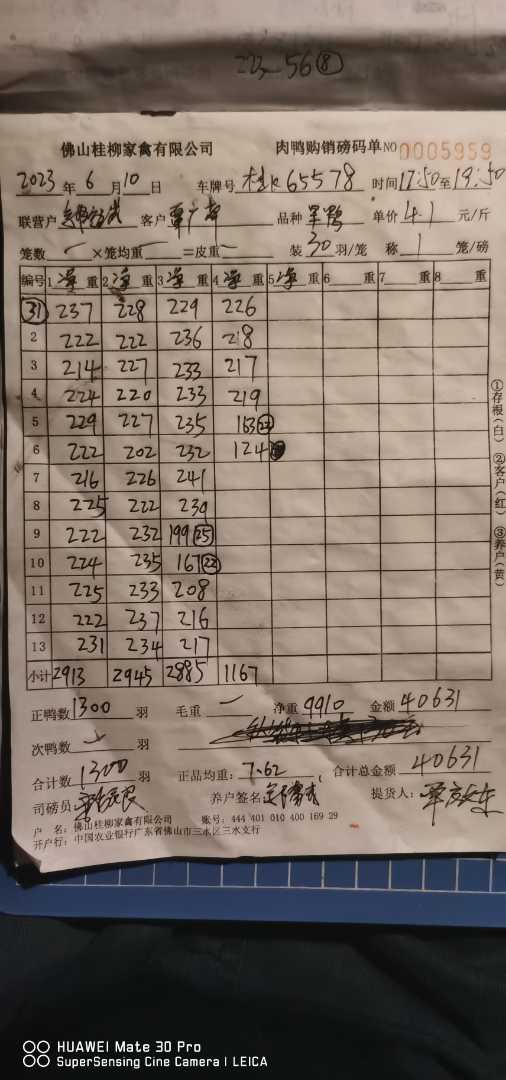 223-56⑧
佛山桂柳家禽有限公司 肉鸭购销磅码单NO 0005959
2023年6月10日 车牌号 桂K65578 时间17:50至19:50
联营户 客户 覃广东 品种 单价4.1元/斤
笼数一×笼均重一=皮重一 装30羽/笼 称1笼/磅
编号 1净重 2净重 3净重 4净重 5净重 6重 7重 8重
㉛ 237 228 229 226
2 222 222 236 218
3 214 227 233 217
4 224 220 233 219
5 229 227 235 163
6 222 202 232 124
7 216 226 241
8 225 222 239
9 222 232 199㉕
10 224 235 167㉒
11 225 233 208
12 222 237 216
13 231 234 217
小计 2913 2945 2885 1167
①存根(白) ②客户(红) ③养户(黄)
正鸭数1300羽 毛重一 净重9910 金额40631
次鸭数 羽
合计数1300羽 正品均重:7.62 合计总金额40631
司磅员 养户签名 提货人:
户 名:佛山桂柳家禽有限公司 账号:444 401 010 400 169 29
开户行:中国农业银行广东省佛山市三水区三水支行
HUAWEI Mate 30 Pro
SuperSensing Cine Camera | LEICA